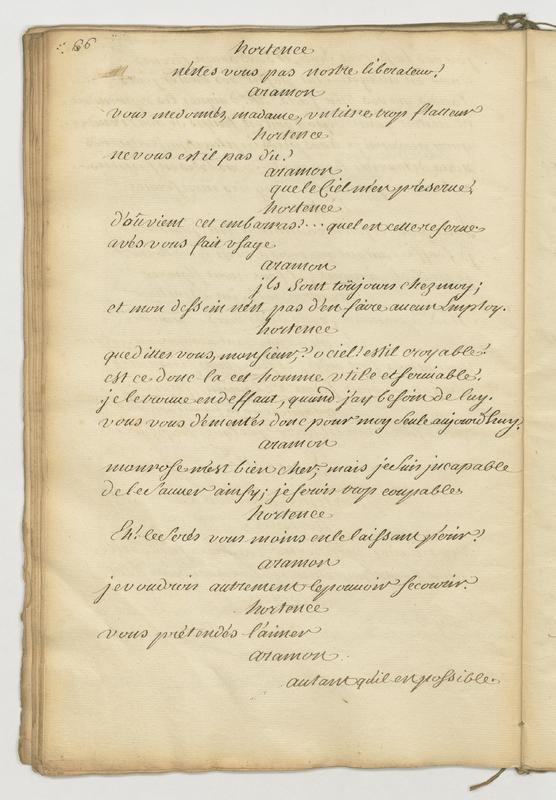 66
hortence
n'êttes vous pas nostre liberateur?
aramon
vous me donnés, madame, un titre trop flatteur
hortence
ne vous est il pas du?
aramon
que le Ciel m'en préserve!
hortence
d'où vient cet embarras?... quel en cette reserve
avés vous fait usage
aramon
jls sont toûjours chez moy;
et mon dessein n'est pas d'en faire aucun Employ.
hortence
que dittes vous, monsieur? o ciel! est il croyable?
est ce donc la cet homme utile et serviable?
je le trouve en deffaut, quand j'ay besoin de luy.
vous vous démentés donc pour moy seule aujourd'huy?
aramon
monrose m'est bien cher; mais je suis jncapable
de le sauver ainsy; je serois trop coupable
hortence
Eh! le serés vous moins en le laissant périr?
aramon
je voudrois autrement le pouvoir secourir.
hortence
vous prétendés l'aimer
aramon
autant qu'il est possible.